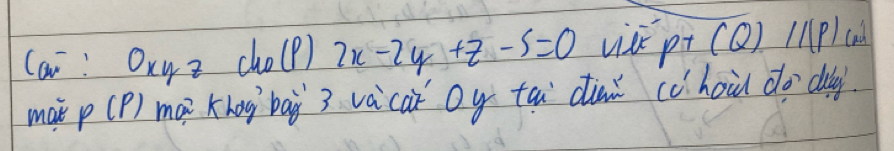 Câu : Oxyz cho (P) 2x-2y+z-5=0 viết pt (Q) //(P) cách
mặt p (P) một khoảng bằng 3 và cắt Oy tại điểm có hoành độ dương.